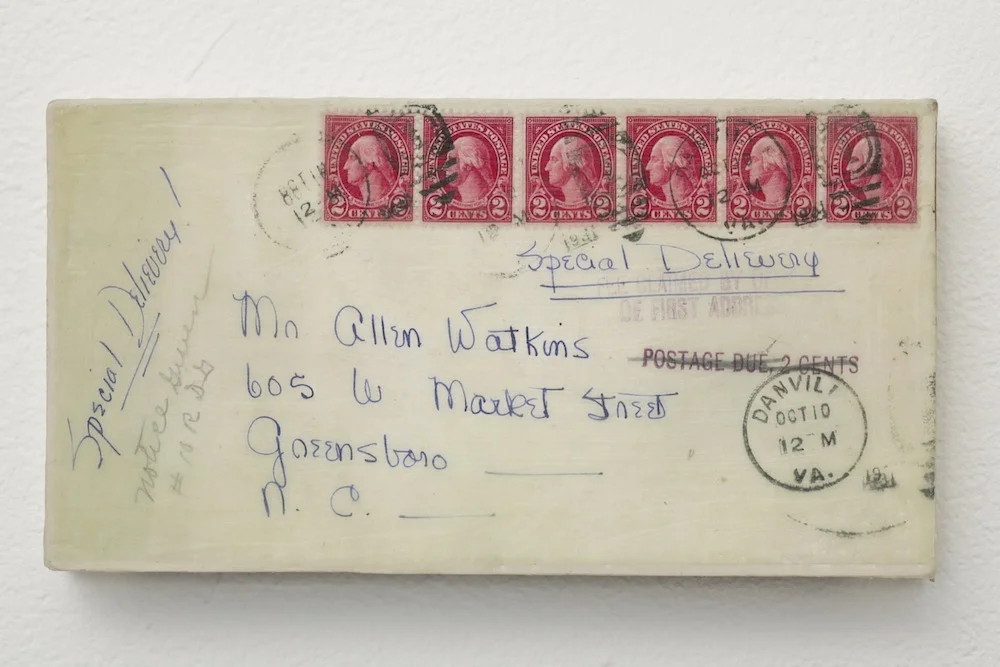 UNITED STATES POSTAGE
2 CENTS 2
STATES POSTAGE
2 CENTS 2
UNITED STATES POSTAGE
2 CENTS 2
UNITED STATES POSTAGE
2 CENTS 2
UNITED STATES POSTAGE
2 CENTS 2
UNITED STATES POSTAGE
2 CENTS 2
12 M
VA.
1931
Special Delievery
FEE CLAIMED BY OF
OF FIRST ADDRES
POSTAGE DUE, 2 CENTS
Special Delievery!
Notice Given
Mr Allen Watkins
605 W Market Street
Greensboro
N. C.
DANVILL
OCT 10
12 M
VA.
1931